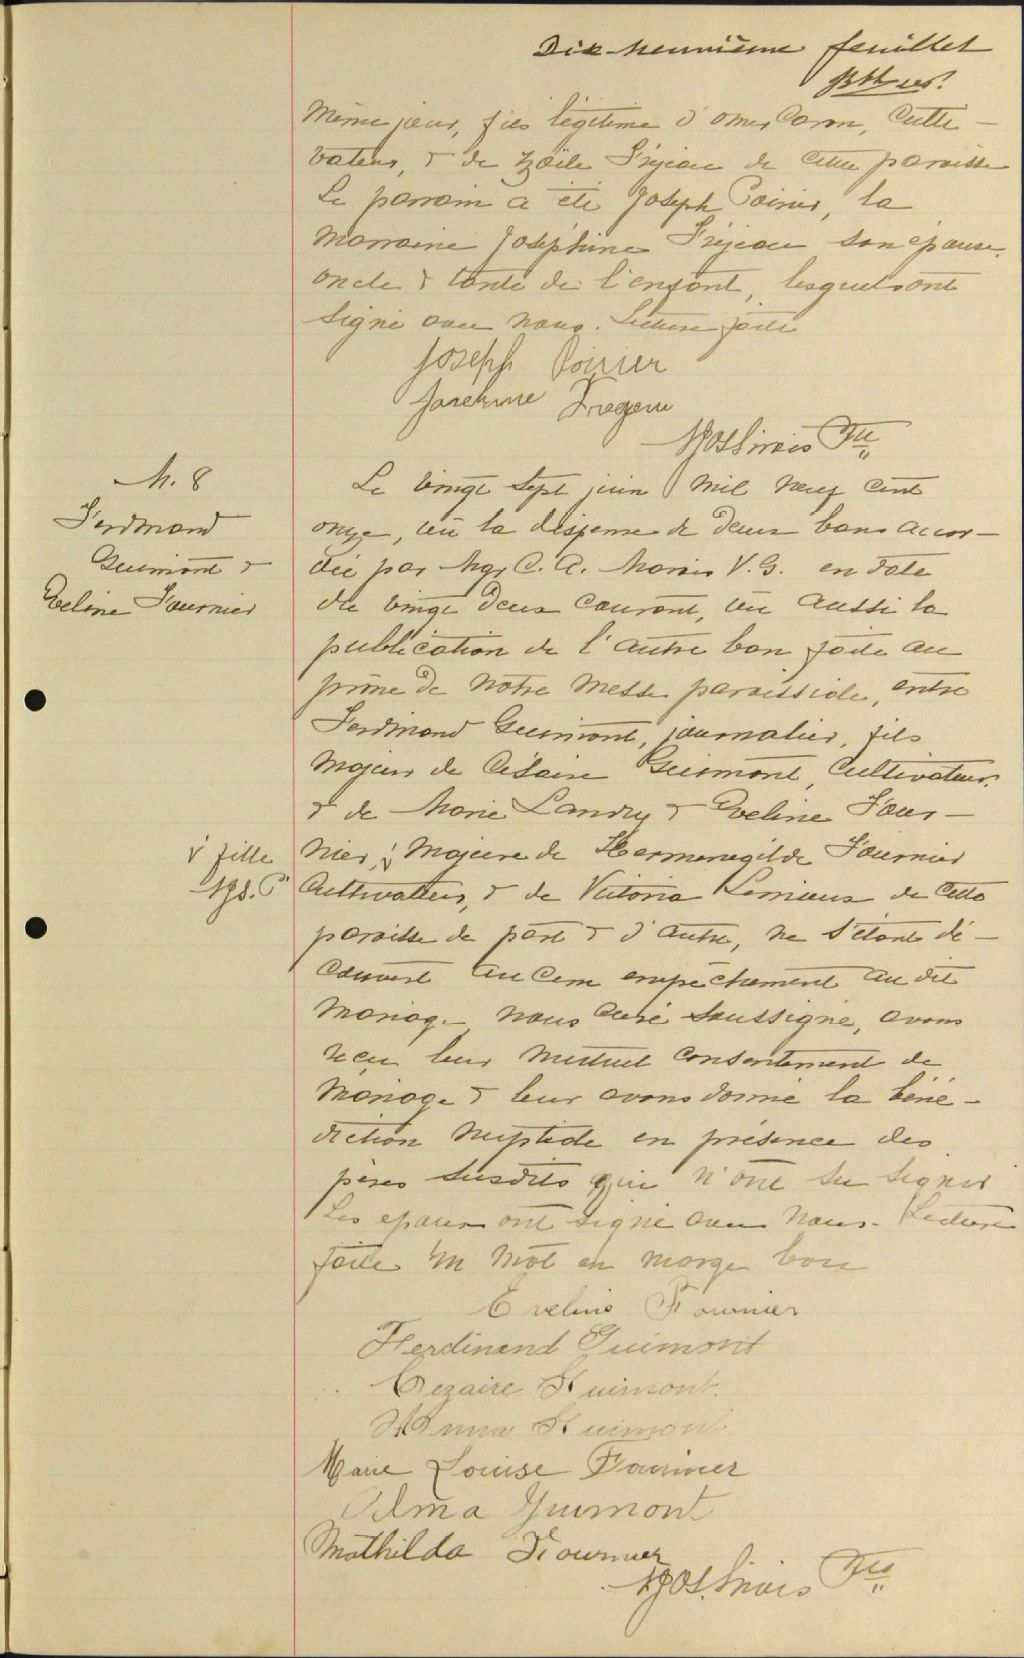 Dix-neuvième feuillet
même jour, fils légitime d'Omer Caron, culti-
vateur, & de Zoïle Fréjeau de cette paroisse
Le parrain a été Joseph Poirier, la
marraine Joséphine Fréjeau son épouse,
oncle & tante de l'enfant, lesquels ont
signé avec nous. Lecture faite
Joseph Poirier
Josephine Fregeau
Sirois Ptre
M. 8
Ferdinand
Guimont &
Eveline Fournier
Le vingt sept juin mil neuf cent
onze, vu la dispense de deux bans accor-
dée par Mgr C. A. Marois V.G. en date
du vingt deux courant, vu aussi la
publication de l'autre ban faite au
prône de notre messe paroissiale, entre
Ferdinand Guimont, journalier, fils
majeur de Césaire Guimont, cultivateur,
& de Marie Landry & Eveline Four-
nier, √ majeure de Hermenegilde Fournier
√ fille
cultivateur, & de Victoria Lemieux de cette
paroisse de part & d'autre, ne s'étant dé-
couvert aucun empêchement au dit
mariage, nous curé soussigné, avons
reçu leur mutuel consentement de
mariage & leur avons donné la béné-
diction nuptiale en présence des
pères susdits qui n'ont su signer
Les epoux ont signé avec nous. Lecture
faite Un mot en marge bon
Eveline Fournier
Ferdinand Guimont
Cezaire Guimont.
Anna Guimont
Marie Louise Fournier
Alma Guimont
Mathilda Fournier
Sirois Ptre